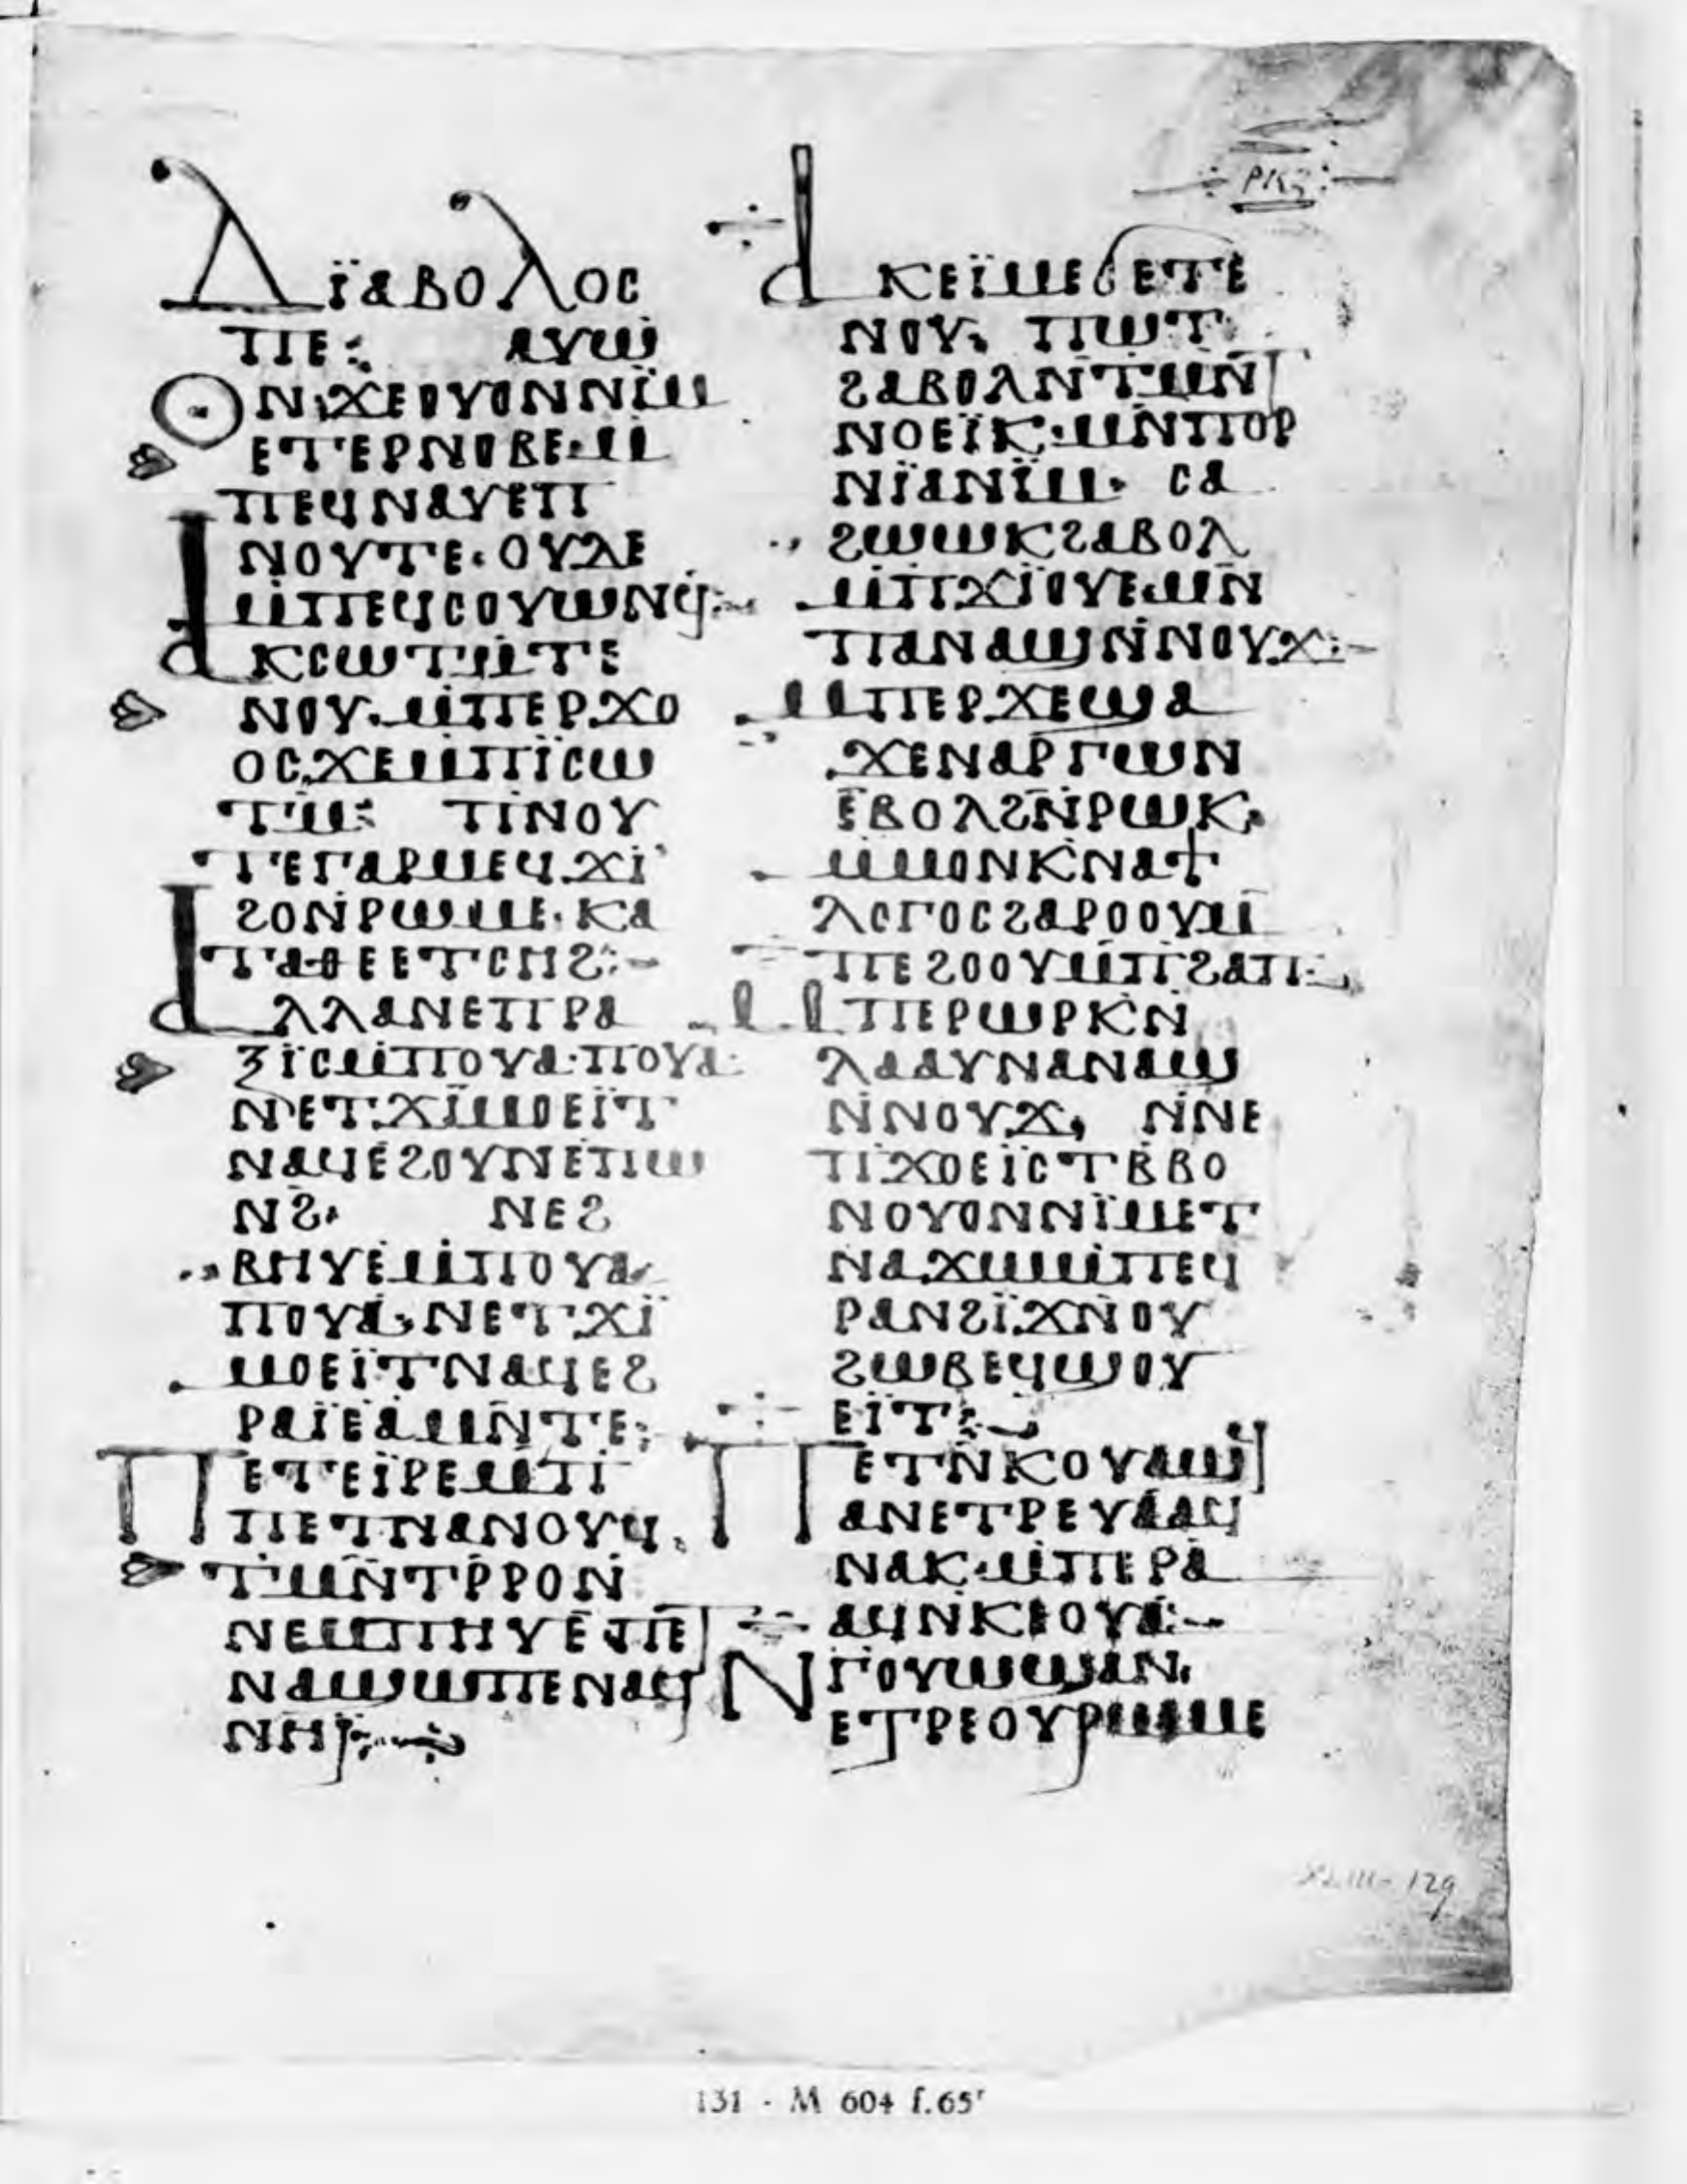 ⲣⲕⲍ
ⲇⲓ̈ⲁⲃⲟⲗⲟⲥ
ⲡⲉ: ⲁⲩⲱ
ⲟⲛ·ϫⲉⲟⲩⲟⲛⲛⲓ̈ⲙ
ⲉⲧⲉⲣⲛⲟⲃⲉ·ⲙ
ⲡⲉϥⲛⲁⲩⲉⲡ
ⲛⲟⲩⲧⲉ·ⲟⲩⲇⲉ
ⲙ̇ⲡⲉϥⲥⲟⲩⲱⲛϥ:–
ⲁⲕⲥⲱⲧⲙ̇ⲧⲉ
ⲛⲟⲩ·ⲙ̇ⲡⲉⲣϫⲟ
ⲟⲥϫⲉⲙ̇ⲡⲓ̈ⲥⲱ
ⲧⲙ̇: ⲧⲓ̇ⲛⲟⲩ
ⲧⲉⲅⲁⲣⲙⲉϥϫⲓ
ϩⲟⲛ̇ⲣⲱⲙⲉ·ⲕⲁ
ⲧⲁⲑⲉⲉⲧⲥⲏϩ:–
ⲁⲗⲗⲁⲛⲉⲡⲣⲁ
ⲝⲓ̈ⲥⲙ̇ⲡⲟⲩⲁ·ⲡⲟⲩⲁ·
ⲛⲉⲧϫⲓ̈ⲙⲟⲉⲓ̈ⲧ
ⲛⲁϥⲉ̇ϩⲟⲩⲛⲉ̇ⲡⲱ
ⲛϩ· ⲛⲉϩ
ⲃⲏⲩⲉ̇ⲙ̇ⲡⲟⲩⲁ
ⲡⲟⲩⲁ·ⲛⲉⲧϫⲓ̈
ⲙⲟⲉⲓ̈ⲧⲛⲁϥⲉϩ
ⲣⲁⲓ̈ⲉ̇ⲁⲙⲛ̄ⲧⲉ:
ⲡⲉⲧⲉⲓ̈ⲣⲉⲙ̇ⲡ
ⲡⲉⲧⲛⲁⲛⲟⲩϥ·
ⲧⲙⲛ̄ⲧⲣ̄ⲣⲟⲛ̇
ⲛⲉⲙⲡⲏⲩⲉ̇ⲧⲉ
ⲛⲁϣⲱⲡⲉⲛⲁϥ
ⲛⲏ
ⲁⲕⲉⲓ̈ⲙⲉϭⲉⲧⲉ
ⲛⲟⲩ· ⲡⲱⲧ
ϩⲁⲃⲟⲗⲛ̄ⲧⲙⲛ̄ⲧ
ⲛⲟⲉⲓ̈ⲕ·ⲙⲛ̄ⲡⲟⲣ
ⲛⲓ̈ⲁⲛⲓ̈ⲙ· ⲥⲁ
ϩⲱⲱⲕϩⲁⲃⲟⲗ
ⲙ̇ⲡϫⲓ̈ⲟⲩⲉ·ⲙⲛ̄
ⲡⲁⲛⲁϣⲛ̇ⲛⲟⲩϫ:–
ⲙⲡⲉⲣϫⲉϣⲁ
ϫⲉⲛⲁⲣⲅⲱⲛ
ⲉ̇ⲃⲟⲗϩⲛ̄ⲣⲱⲕ·
ⲙⲙⲟⲛⲕ̇ⲛⲁϯ
ⲗⲟⲅⲟⲥϩⲁⲣⲟⲟⲩⲙ̇
ⲡⲉϩⲟⲟⲩⲙ̇ⲡϩⲁⲡ:
ⲙⲡⲉⲣⲱⲣⲕ̇ⲛ̇
ⲗⲁⲁⲩⲛⲁⲛⲁϣ
ⲛ̇ⲛⲟⲩϫ· ⲛ̇ⲛⲉ
ⲡϫⲟⲉⲓ̈ⲥⲧⲃ̄ⲃⲟ
ⲛⲟⲩⲟⲛⲛⲓ̈ⲙⲉⲧ
ⲛⲁϫⲱⲙ̇ⲡⲉϥ
ⲣⲁⲛϩⲓ̈ϫⲛ̄ⲟⲩ
ϩⲱⲃⲉϥϣⲟⲩ
ⲉⲓ̈ⲧ:
ⲡⲉⲧⲛ̄ⲕⲟⲩⲁϣϥ
ⲁⲛⲉⲧⲣⲉⲩⲁⲁϥ
ⲛⲁⲕ·ⲙ̇ⲡⲉⲣⲁ
ⲁϥⲛⲕⲉⲟⲩⲁ:–
ⲛⲅⲟⲩⲱϣⲁⲛ·
ⲉⲧⲣⲉⲟⲩⲣⲱⲙⲉ
131 - M 604 f.65ʳ